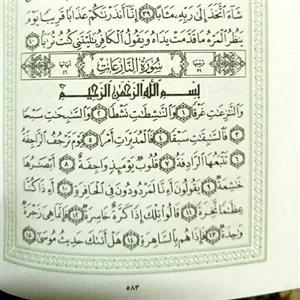 شَآءَ ٱتَّخَذَ إِلَىٰ رَبِّهِۦ مَـَٔابًا ٣٩ إِنَّآ أَنذَرْنَٰكُمْ عَذَابًا قَرِيبًا يَوْمَ
يَنظُرُ ٱلْمَرْءُ مَا قَدَّمَتْ يَدَاهُ وَيَقُولُ ٱلْكَافِرُ يَٰلَيْتَنِى كُنتُ تُرَٰبًۢا ٤٠
ترتيبها ٧٩ سُورَةُ النَّازِعَاتِ آياتها ٤٦
بِسْمِ ٱللَّهِ ٱلرَّحْمَٰنِ ٱلرَّحِيمِ
وَٱلنَّٰزِعَٰتِ غَرْقًا ١ وَٱلنَّٰشِطَٰتِ نَشْطًا ٢ وَٱلسَّٰبِحَٰتِ سَبْحًا
٣ فَٱلسَّٰبِقَٰتِ سَبْقًا ٤ فَٱلْمُدَبِّرَٰتِ أَمْرًا ٥ يَوْمَ تَرْجُفُ ٱلرَّاجِفَةُ
٦ تَتْبَعُهَا ٱلرَّادِفَةُ ٧ قُلُوبٌ يَوْمَئِذٍ وَاجِفَةٌ ٨ أَبْصَٰرُهَا
خَٰشِعَةٌ ٩ يَقُولُونَ أَءِنَّا لَمَرْدُودُونَ فِى ٱلْحَافِرَةِ ١٠ أَءِذَا كُنَّا
عِظَٰمًا نَّخِرَةً ١١ قَالُوا۟ تِلْكَ إِذًا كَرَّةٌ خَاسِرَةٌ ١٢ فَإِنَّمَا هِىَ زَجْرَةٌ
وَٰحِدَةٌ ١٣ فَإِذَا هُم بِٱلسَّاهِرَةِ ١٤ هَلْ أَتَىٰكَ حَدِيثُ مُوسَىٰٓ ١٥
٥٨٣